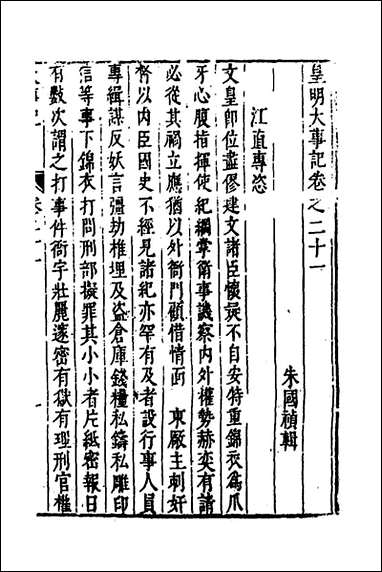 皇明大事記卷之二十一
朱國禎輯
江直專恣
文皇即位盡僇建文諸臣懷疑不自安特重錦衣為爪
牙心腹指揮使紀綱掌衛事譏察内外權勢赫奕有請
必從其禍立應猶以外衙門顧借情面 東厰主刺奸
皆以内臣國史不經見諸紀亦罕有及者設行事人員
專緝謀反妖言彊刧椎埋及盜倉庫錢糧私鑄私雕印
信等事下錦衣打問刑部擬罪其小小者片紙密報日
有數次謂之打事件衙宇壯麗邃密有獄有理刑官權